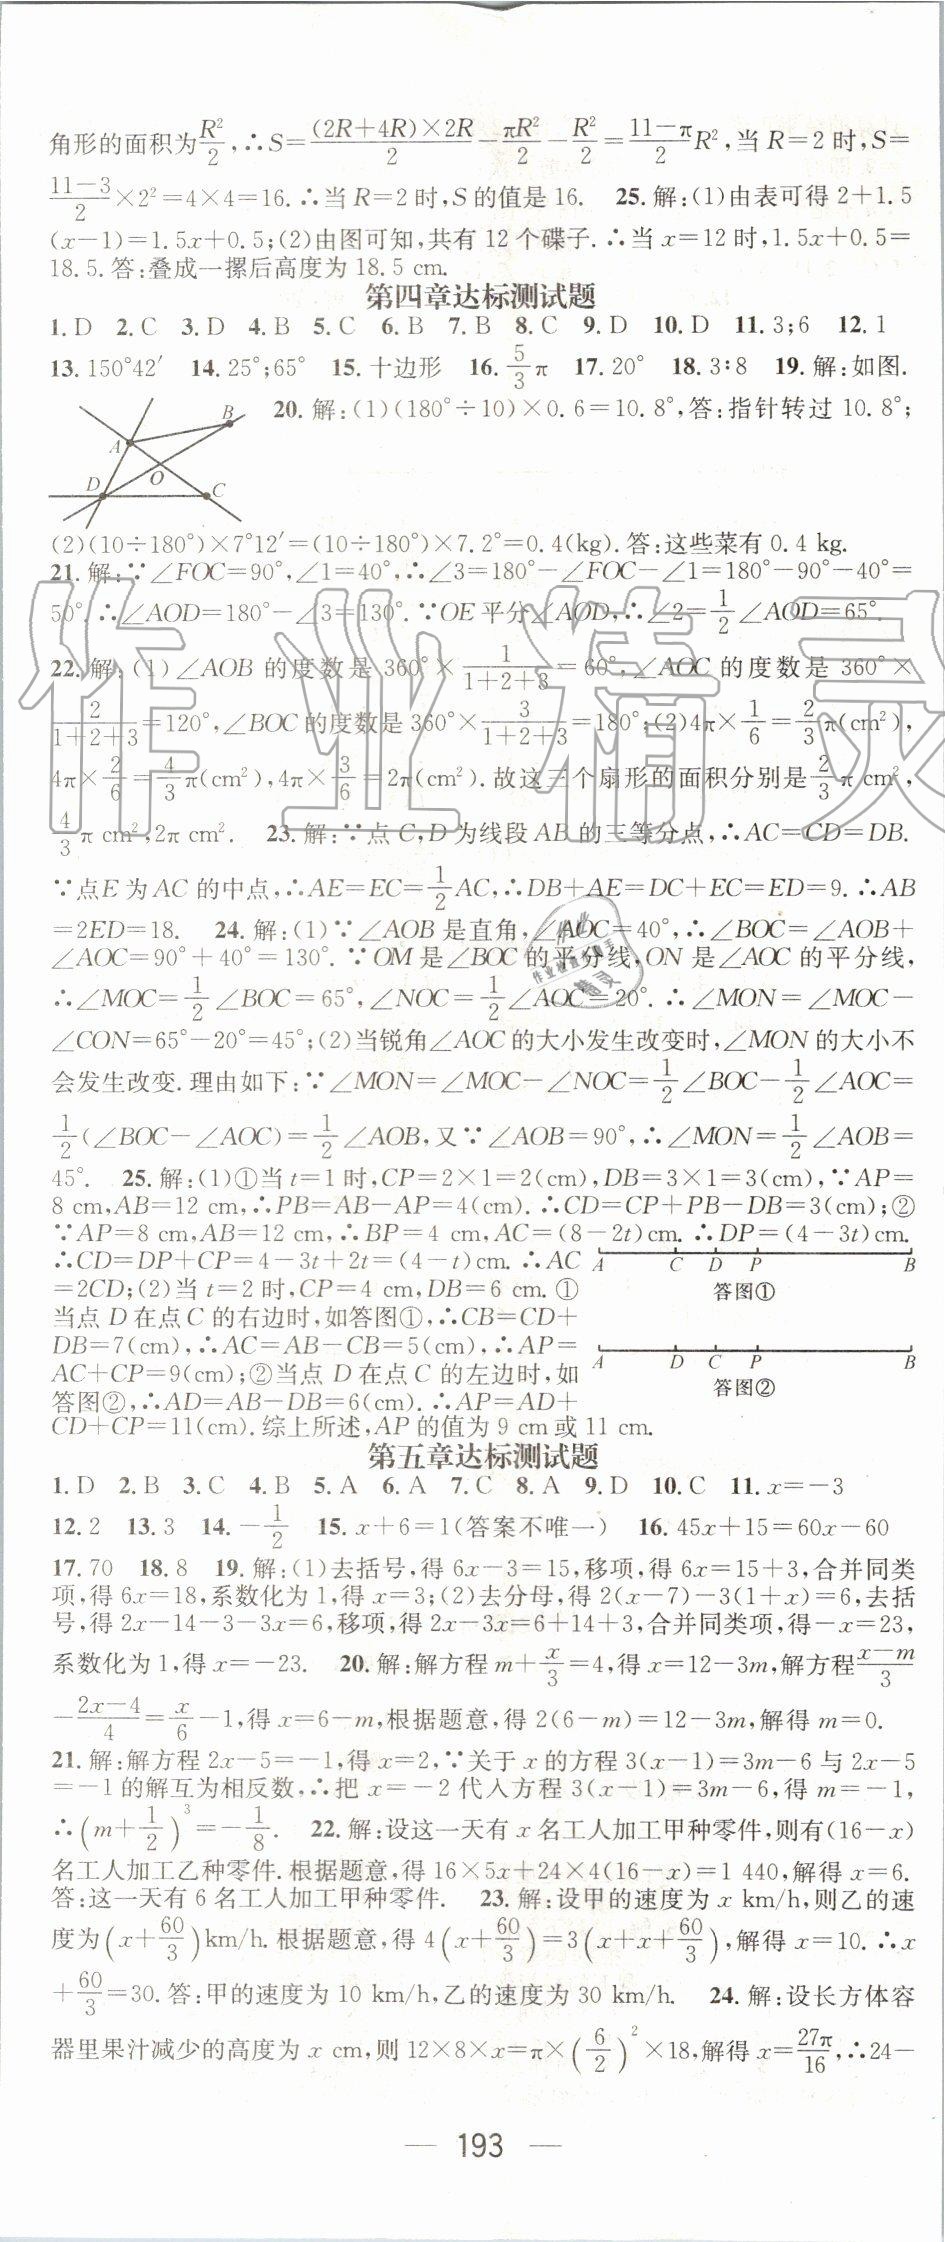 角形的面积为R²/2,∴S=(2R+4R)×2R/2-πR²/2-R²/2=(11-π)/2 R²,当R=2时,S=
(11-3)/2×2²=4×4=16.∴当R=2时,S的值是16. 25.解:(1)由表可得2+1.5
(x-1)=1.5x+0.5;(2)由图可知,共有12个碟子.∴当x=12时,1.5x+0.5=
18.5.答:叠成一摞后高度为18.5 cm.
第四章达标测试题
1.D 2.C 3.D 4.B 5.C 6.B 7.B 8.C 9.D 10.D 11.3;6 12.1
13.150°42′ 14.25°;65° 15.十边形 16.5/3π 17.20° 18.3∶8 19.解:如图.
A B O D C
20.解:(1)(180°÷10)×0.6=10.8°,答:指针转过10.8°;
(2)(10÷180°)×7°12′=(10÷180°)×7.2°=0.4(kg).答:这些菜有0.4 kg.
21.解:∵∠FOC=90°,∠1=40°,∴∠3=180°-∠FOC-∠1=180°-90°-40°=
50°.∴∠AOD=180°-∠3=130°.∵OE平分∠AOD,∴∠2=1/2∠AOD=65°.
22.解:(1)∠AOB的度数是360°×1/(1+2+3)=60°,∠AOC的度数是360°×
2/(1+2+3)=120°,∠BOC的度数是360°×3/(1+2+3)=180°;(2)4π×1/6=2/3π(cm²),
4π×2/6=4/3π(cm²),4π×3/6=2π(cm²).故这三个扇形的面积分别是2/3π cm²,
4/3π cm²,2π cm². 23.解:∵点C,D为线段AB的三等分点,∴AC=CD=DB.
∵点E为AC的中点,∴AE=EC=1/2AC,∴DB+AE=DC+EC=ED=9.∴AB
=2ED=18. 24.解:(1)∵∠AOB是直角,∠AOC=40°,∴∠BOC=∠AOB+
∠AOC=90°+40°=130°.∵OM是∠BOC的平分线,ON是∠AOC的平分线,
∴∠MOC=1/2∠BOC=65°,∠NOC=1/2∠AOC=20°.∴∠MON=∠MOC-
∠CON=65°-20°=45°;(2)当锐角∠AOC的大小发生改变时,∠MON的大小不
会发生改变.理由如下:∵∠MON=∠MOC-∠NOC=1/2∠BOC-1/2∠AOC=
1/2(∠BOC-∠AOC)=1/2∠AOB,又∵∠AOB=90°,∴∠MON=1/2∠AOB=
45°. 25.解:(1)①当t=1时,CP=2×1=2(cm),DB=3×1=3(cm),∵AP=
8 cm,AB=12 cm,∴PB=AB-AP=4(cm).∴CD=CP+PB-DB=3(cm);②
∵AP=8 cm,AB=12 cm,∴BP=4 cm,AC=(8-2t)cm.∴DP=(4-3t)cm.
∴CD=DP+CP=4-3t+2t=(4-t)cm.∴AC
=2CD;(2)当t=2时,CP=4 cm,DB=6 cm.①
当点D在点C的右边时,如答图①,∴CB=CD+
DB=7(cm),∴AC=AB-CB=5(cm),∴AP=
AC+CP=9(cm);②当点D在点C的左边时,如
答图②,∴AD=AB-DB=6(cm).∴AP=AD+
CD+CP=11(cm).综上所述,AP的值为9 cm或11 cm.
A C D P B
答图①
A D C P B
答图②
第五章达标测试题
1.D 2.B 3.C 4.B 5.A 6.A 7.C 8.A 9.D 10.C 11.x=-3
12.2 13.3 14.-1/2 15.x+6=1(答案不唯一) 16.45x+15=60x-60
17.70 18.8 19.解:(1)去括号,得6x-3=15,移项,得6x=15+3,合并同类
项,得6x=18,系数化为1,得x=3;(2)去分母,得2(x-7)-3(1+x)=6,去括
号,得2x-14-3-3x=6,移项,得2x-3x=6+14+3,合并同类项,得-x=23,
系数化为1,得x=-23. 20.解:解方程m+x/3=4,得x=12-3m,解方程(x-m)/3
-(2x-4)/4=x/6-1,得x=6-m,根据题意,得2(6-m)=12-3m,解得m=0.
21.解:解方程2x-5=-1,得x=2,∵关于x的方程3(x-1)=3m-6与2x-5
=-1的解互为相反数,∴把x=-2代入方程3(x-1)=3m-6,得m=-1,
∴(m+1/2)³=-1/8. 22.解:设这一天有x名工人加工甲种零件,则有(16-x)
名工人加工乙种零件.根据题意,得16×5x+24×4(16-x)=1 440,解得x=6.
答:这一天有6名工人加工甲种零件. 23.解:设甲的速度为x km/h,则乙的速
度为(x+60/3)km/h.根据题意,得4(x+60/3)=3(x+x+60/3),解得x=10.∴x
+60/3=30.答:甲的速度为10 km/h,乙的速度为30 km/h. 24.解:设长方体容
器里果汁减少的高度为x cm,则12×8×x=π×(6/2)²×18,解得x=27π/16,∴24-
— 193 —
作业精灵